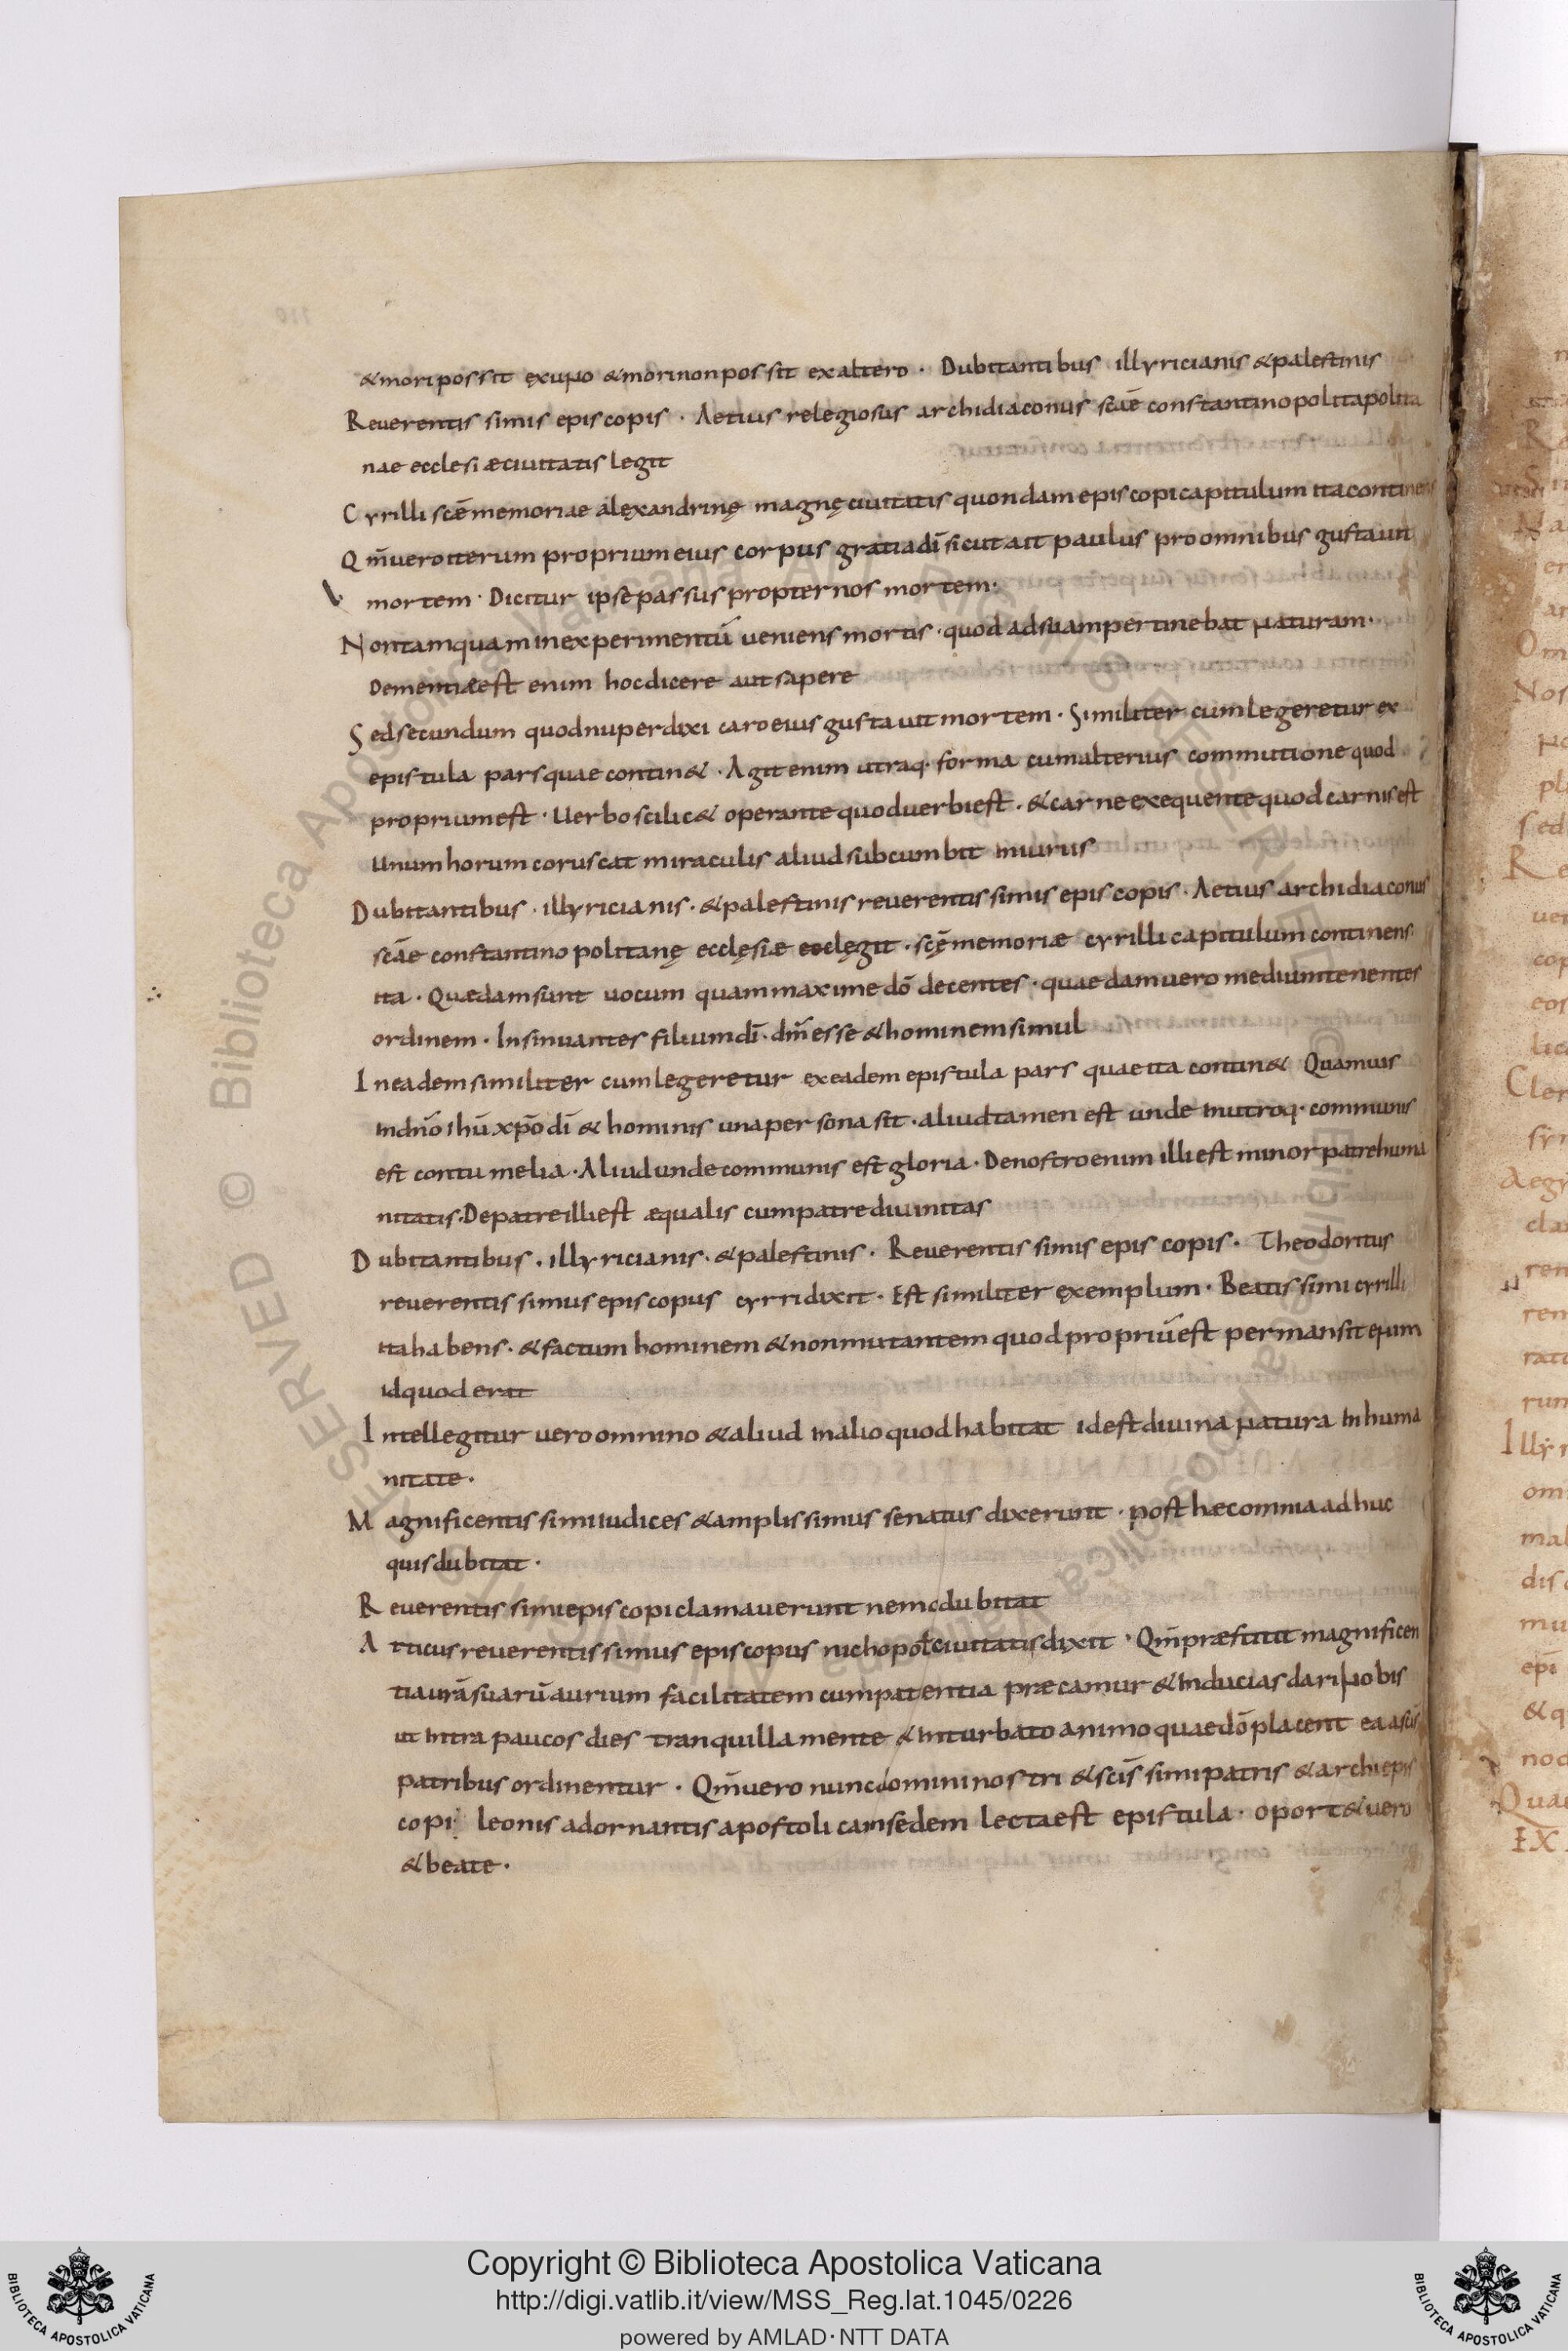 & mori possit ex uno & mori non possit ex altero · Dubitantibus illyricianis & palestinis
Reverentissimis episcopis · Aetius relegiosus archidiaconus scāe constantinopolitapolita
nae ecclesiæ civitatis legit
Cyrilli scē memoriae alexandrinę magnę civitatis quondam episcopi capitulum ita continens
Qm̄ vero iterum proprium eius corpus gratia dī sicut ait paulus pro omnibus gustavit
mortem · Dicitur ipse passus propter nos mortem ·
Non tamquam in experimentū veniens mortis · quod ad suam pertinebat naturam ·
Dementiæ est enim hoc dicere aut sapere
Sed secundum quod nuper dixi caro eius gustavit mortem · Similiter cum legeretur ex
epistula pars quae contin& · Agit enim utraq· forma cum alterius commutione quod
proprium est · Uerbo scilic& operante quod verbi est · & carne exequente quod carnis est
Unum horum coruscat miraculis aliud subcumbit iniuriis
Dubitantibus · illyricianis · & palestinis reverentissimis episcopis · Aetius archidiaconus
scāe constantinopolitanę ecclęsiæ ecclęgit · scę̄ memoriæ cyrilli capitulum continens
ita · Quædam sunt vocum quam maxime dō decentes · quaedam vero medium tenentes
ordinem · Insinuantes filium dī · dm̄ esse & hominem simul
In eadem similiter cum legeretur ex eadem epistula pars quae ita contin& Quamvis
in dnō ihū xpō dī & hominis una persona sit · aliud tamen est unde in utroq· communis
est contumelia · Aliud unde communis est gloria · De nostro enim illi est minor patre huma
nitatis · De patre illi est æqualis cum patre divinitas
Dubitantibus · illyricianis · & palestinis · Reverentissimis episcopis · Theodoritus
reverentissimus episcopus cyrri dixit · Est similiter exemplum · Beatissimi cyrilli
ita habens · & factum hominem & non mutantem quod propriū est permansit enim
id quod erat
Intellegitur vero omnino & aliud in alio quod habitat id est divina natura in huma
nitate ·
Magnificentissimi iudices & amplissimus senatus dixerunt · post hæc omnia adhuc
quis dubitat ·
Reverentissimi episcopi clamaverunt nemo dubitat
Atticus reverentissimus episcopus nichopoł civitatis dixit · Qm̄ præstitit magnificen
tia urā suarū aurium facilitatem cum patentia præcamur & inducias dari nobis
ut intra paucos dies tranquilla mente & inturbato animo quae dō placent ea a scīs
patribus ordinentur · Qm̄ vero nunc domini nostri & scīssimi patris & archiepis
copi leonis adornantis apostolicam sedem lecta est epistula · oport& vero
& beate ·
Copyright © Biblioteca Apostolica Vaticana
http://digi.vatlib.it/view/MSS_Reg.lat.1045/0226
powered by AMLAD·NTT DATA